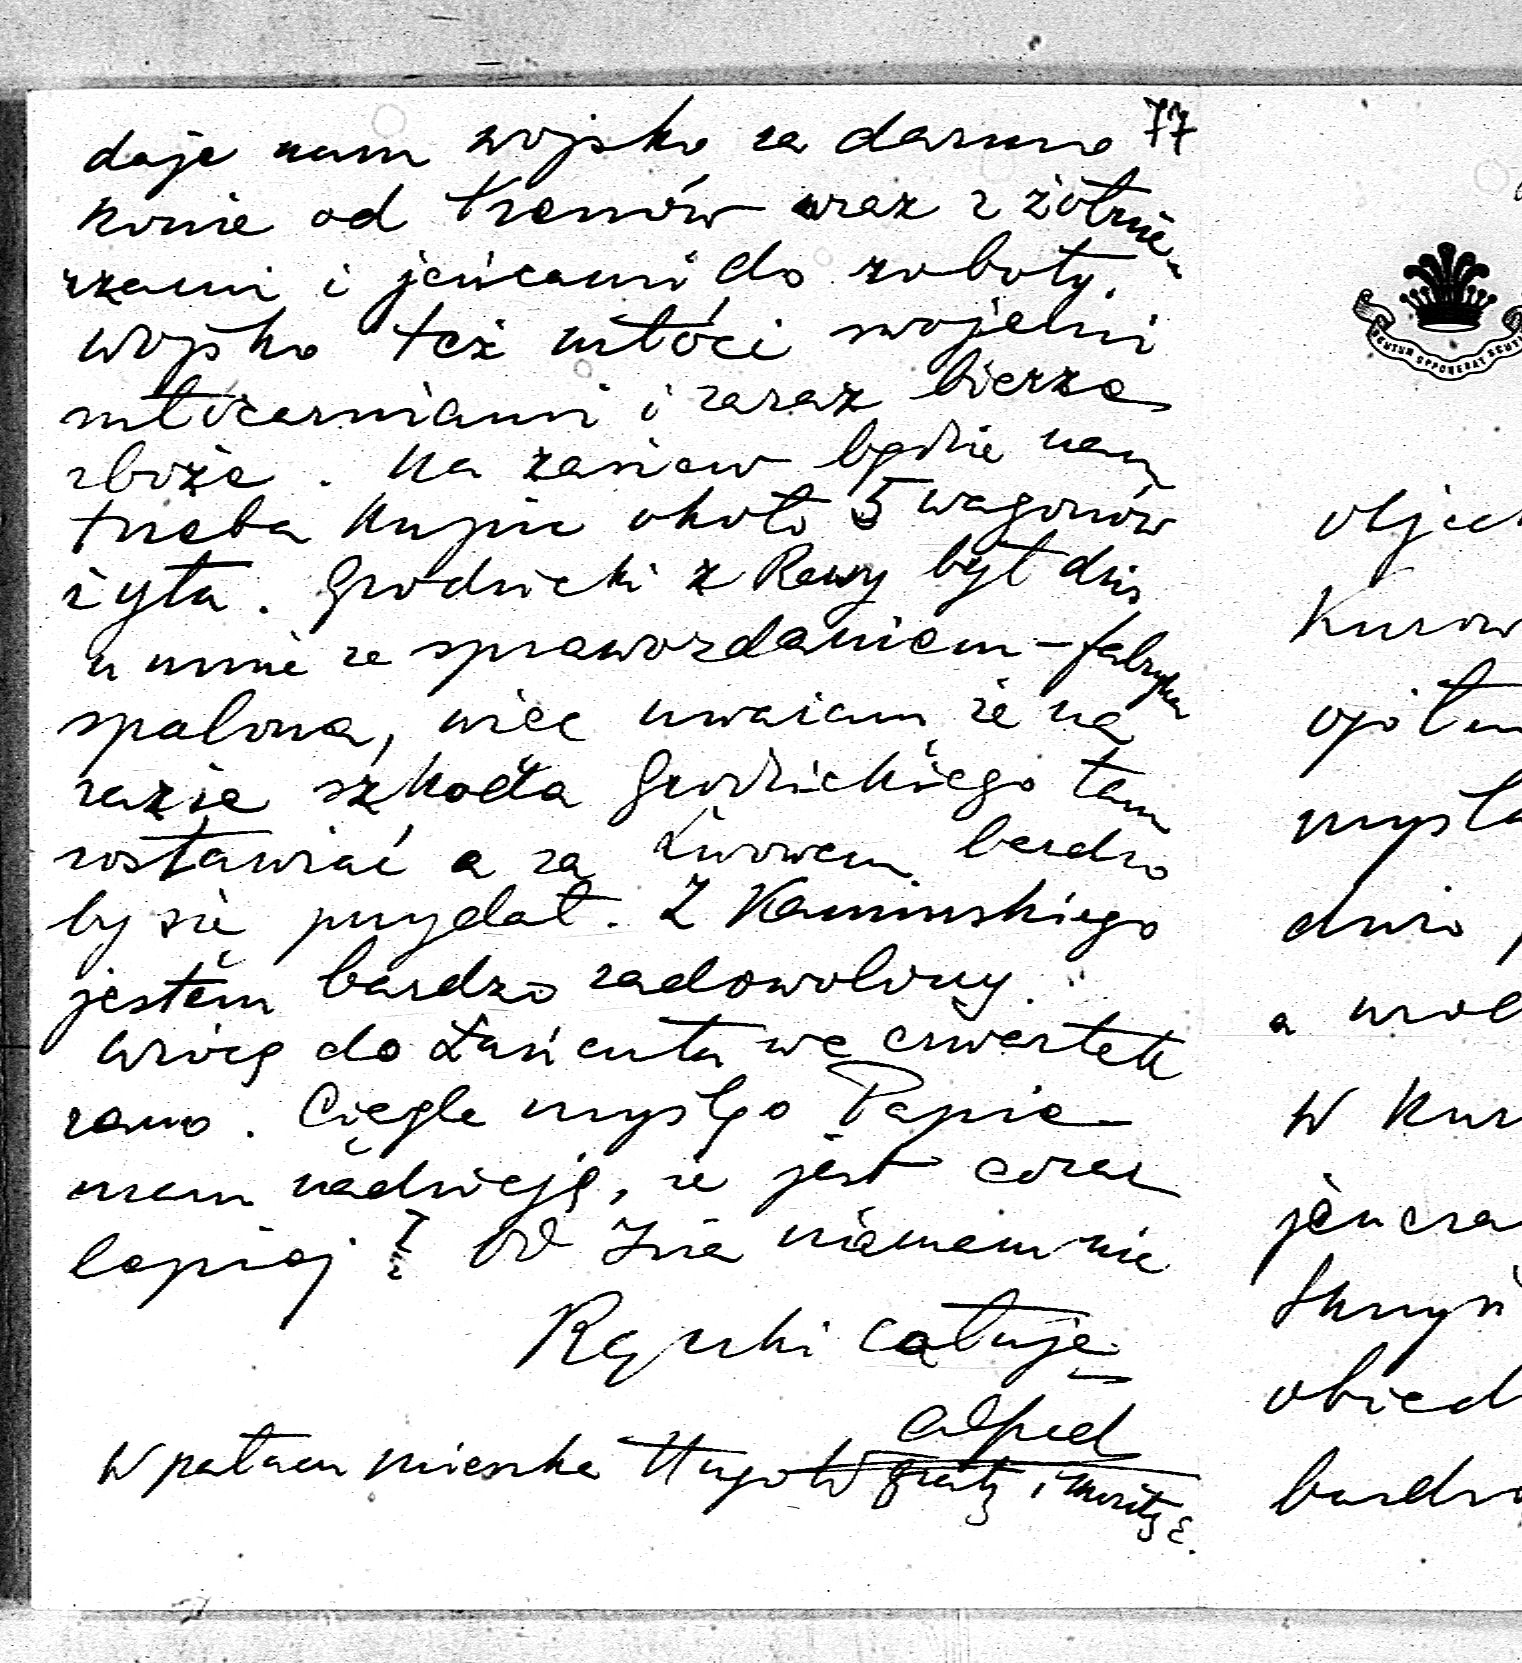 daje nam wojsko za darmo 77
konie od trenów wraz z żołnie-
rzami i jeńcami do roboty.
Wojsko też młóci swojemi
młócarniami i zaraz bierze
zboże. Na zasiew będzie nam
trzeba kupić około 5 wagonów
żyta. Grodzicki z Rawy był dziś
u mnie ze sprawozdaniem – fabryka
spalona, więc uważam że na
razie szkoda Grodzickiego tam
zostawiać a za Lwowem bardzo
by się przydał. Z Kaminskiego
jestem bardzo zadowolony.
Wrócę do Łańcuta we czwartek
rano. Ciągle myślę o Papie
mam nadzieję, że jest coraz
lepiej? Od Izia niemam nic
Rączki całuję
Alfred
W pałacu mieszka Hugo W i Moritz E.
objec
Kurow
ogółem
mysła
dnio
a urol
W Kur
jencra
Skrzyń
obied
bardzo